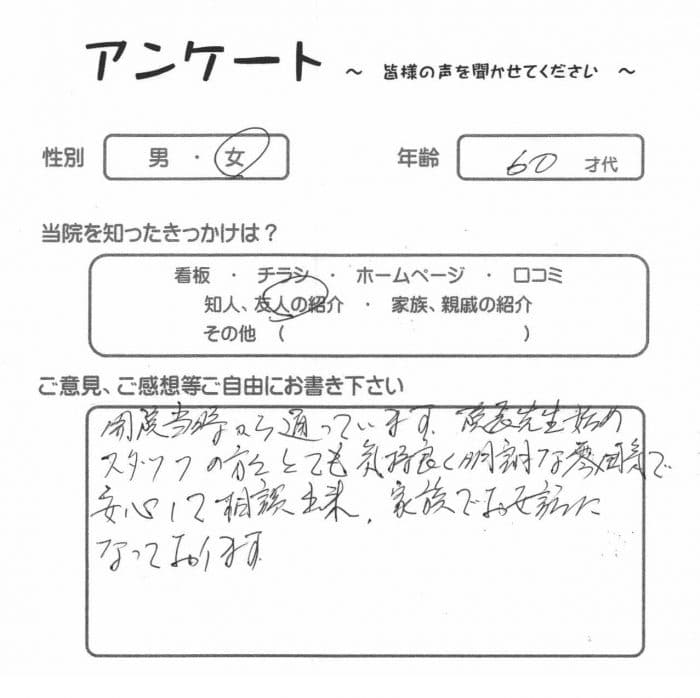 アンケート ～ 皆様の声を聞かせてください ～
性別 男 ・ 女 年齢 60 才代
当院を知ったきっかけは？
看板 ・ チラシ ・ ホームページ ・ 口コミ
知人、友人の紹介 ・ 家族、親戚の紹介
その他 ( )
ご意見、ご感想等ご自由にお書き下さい
開院当時から通っています。院長先生始め
スタッフの方々とても気持良く明朗な雰囲気で
安心して相談出来、家族でお世話に
なっております。